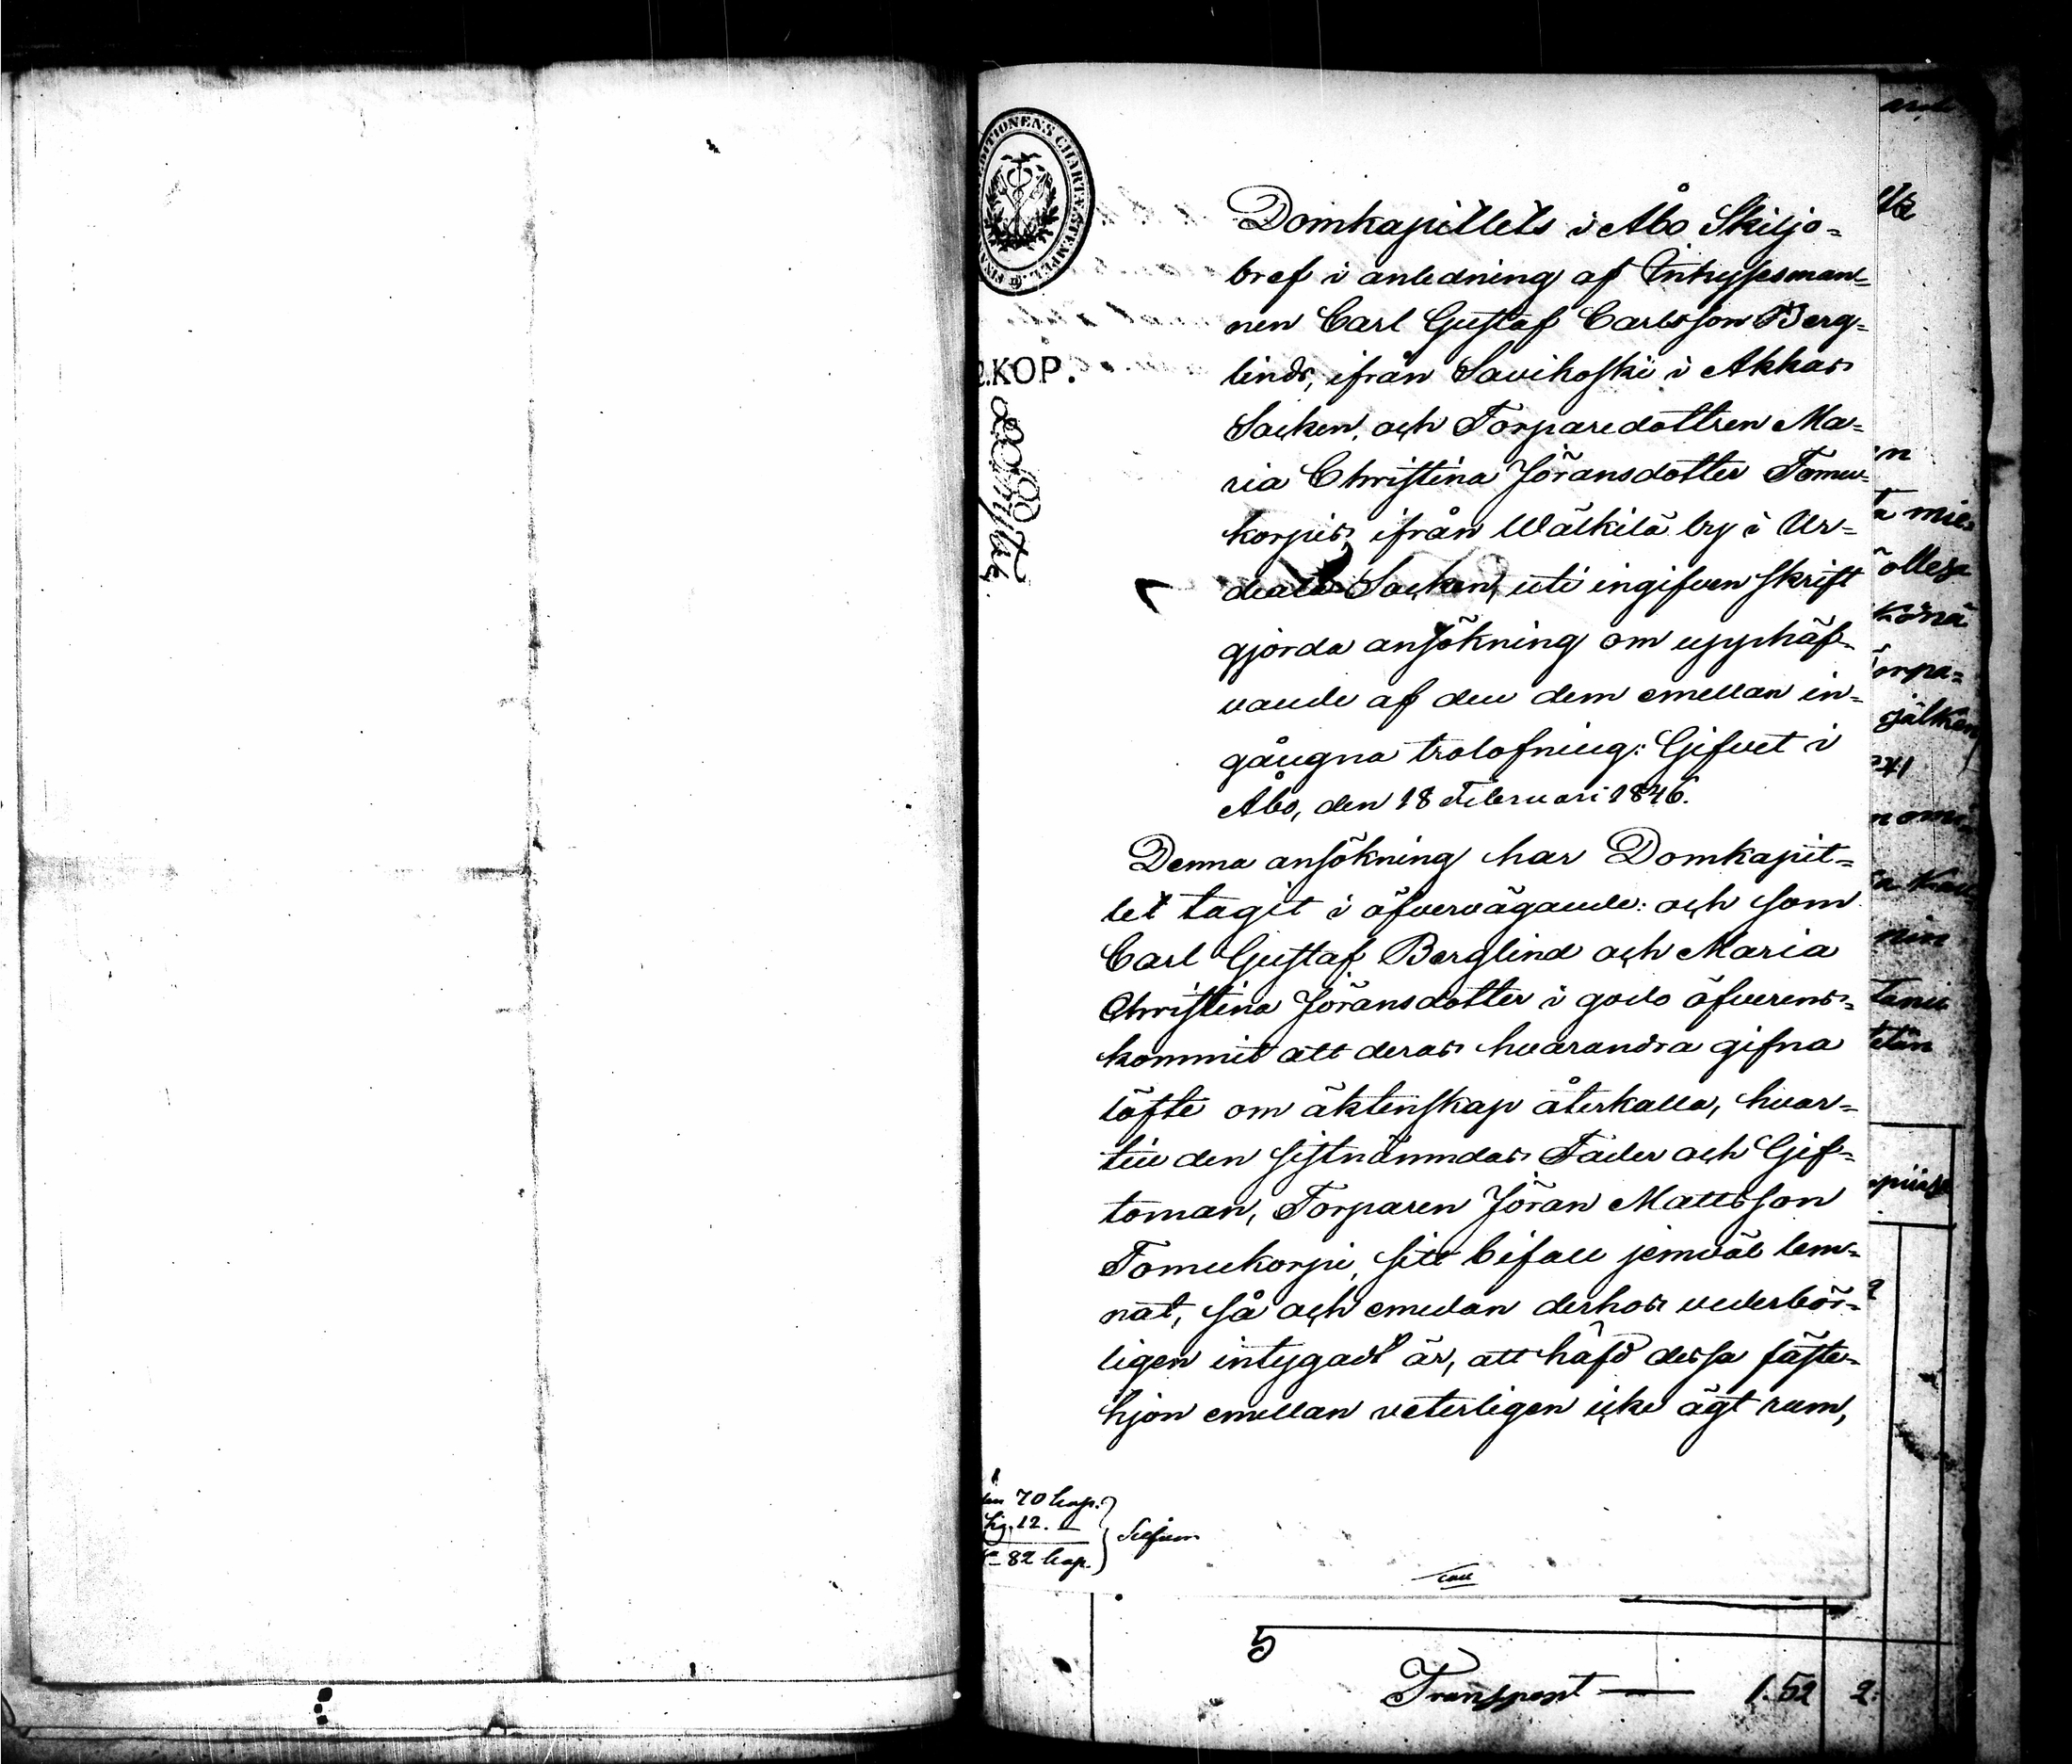 Domkapitlets i Åbo Skiljo-
bref i anledning af Inhysesman-
nen Carl Gustaf Carlsson Berg-
linds, ifrån Savikoski i Akkas
Socken, och Torparedottren Ma-
ria Christina Jöransdotter Tomu-
korpis, ifrån Wälkilä by i Ur-
diala Socken, uti ingifven skrift
gjorda ansökning om upphäf-
vande af den dem emellan in-
gångna trolofning: Gifvet i
Åbo, den 18 Februari 1846.
Denna ansökning har Domkapit-
let tagit i öfvervägande: och som
Carl Gustaf Berglind och Maria
Christina Jöransdotter i godo öfverens-
kommit att deras hvarandra gifna
löfte om äktenskap återkalla, hvar-
till den sistnämndas Fader och Gif-
toman, Torparen Jöran Mattsson
Tomukorpi, sitt bifall jemväl lem-
nat, så och emedan derhos vederbör-
ligen intygadt är, att häfd dessa fäste-
hjon emellan veterligen icke ägt rum,
70 kop.
12. —
82 kop.
KOP.
CHARTÆ STEMPEL
5
Transport — 1.52 2.